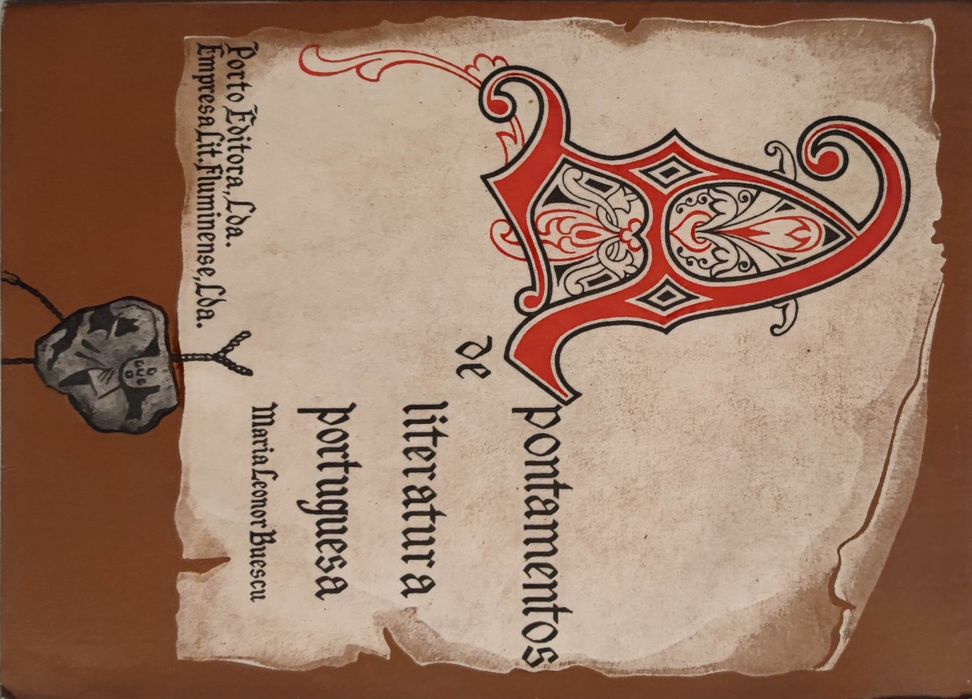 Apontamentos
de
literatura
portuguesa
Maria Leonor Buescu
Porto Editora, Lda.
Empresa Lit. Fluminense, Lda.